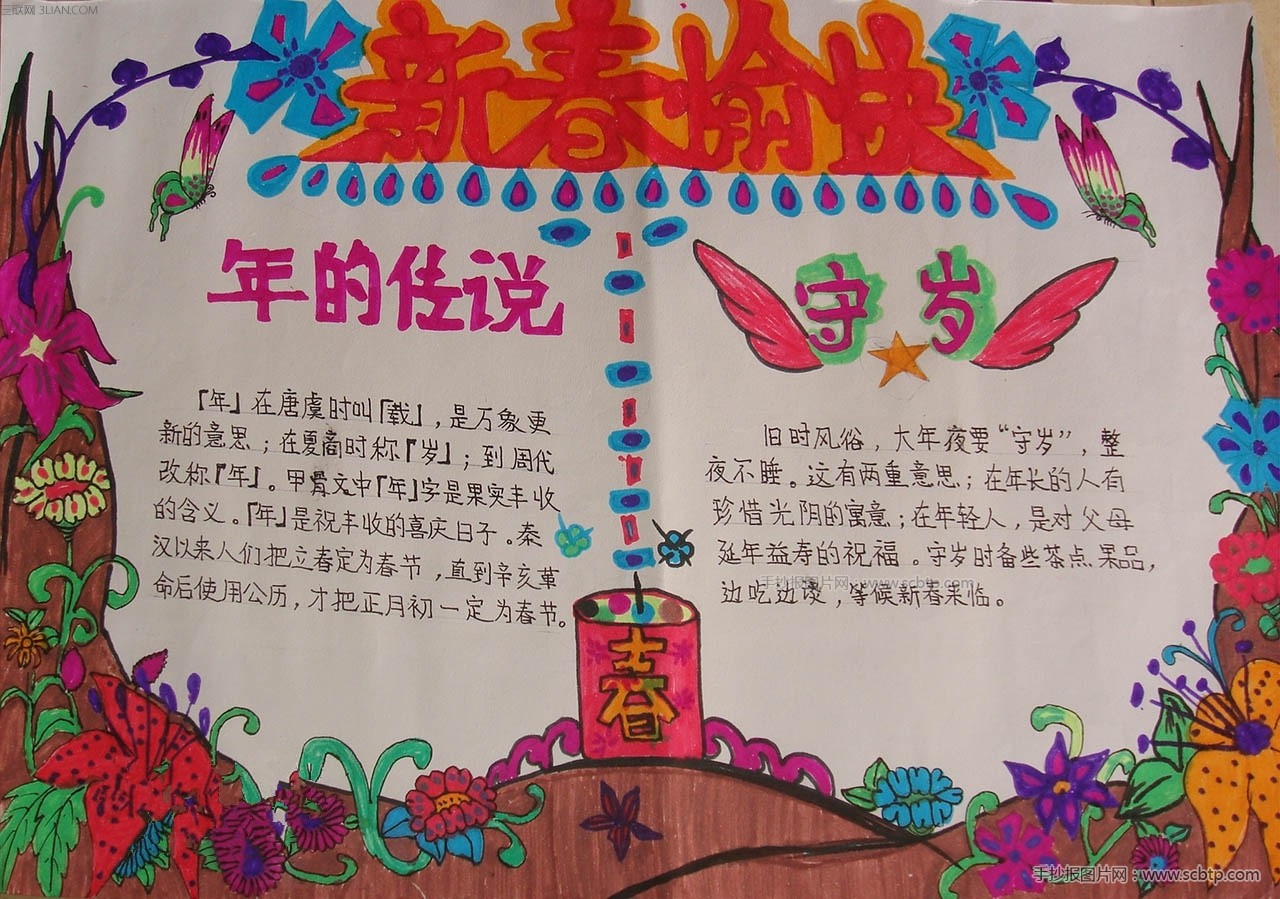 三联网 3LIAN.COM
新春愉快
年的传说
「年」在唐虞时叫「载」，是万象更
新的意思；在夏商时称「岁」；到周代
改称「年」。甲骨文中「年」字是果实丰收
的含义。「年」是祝丰收的喜庆日子。秦
汉以来人们把立春定为春节，直到辛亥革
命后使用公历，才把正月初一定为春节。
守岁
旧时风俗，大年夜要“守岁”，整
夜不睡。这有两重意思；在年长的人有
珍惜光阴的寓意；在年轻人，是对父母
延年益寿的祝福。守岁时备些茶点果品，
手抄报图片网：www.scbtp.com
边吃边谈，等候新春来临。
春
手抄报图片网：www.scbtp.com